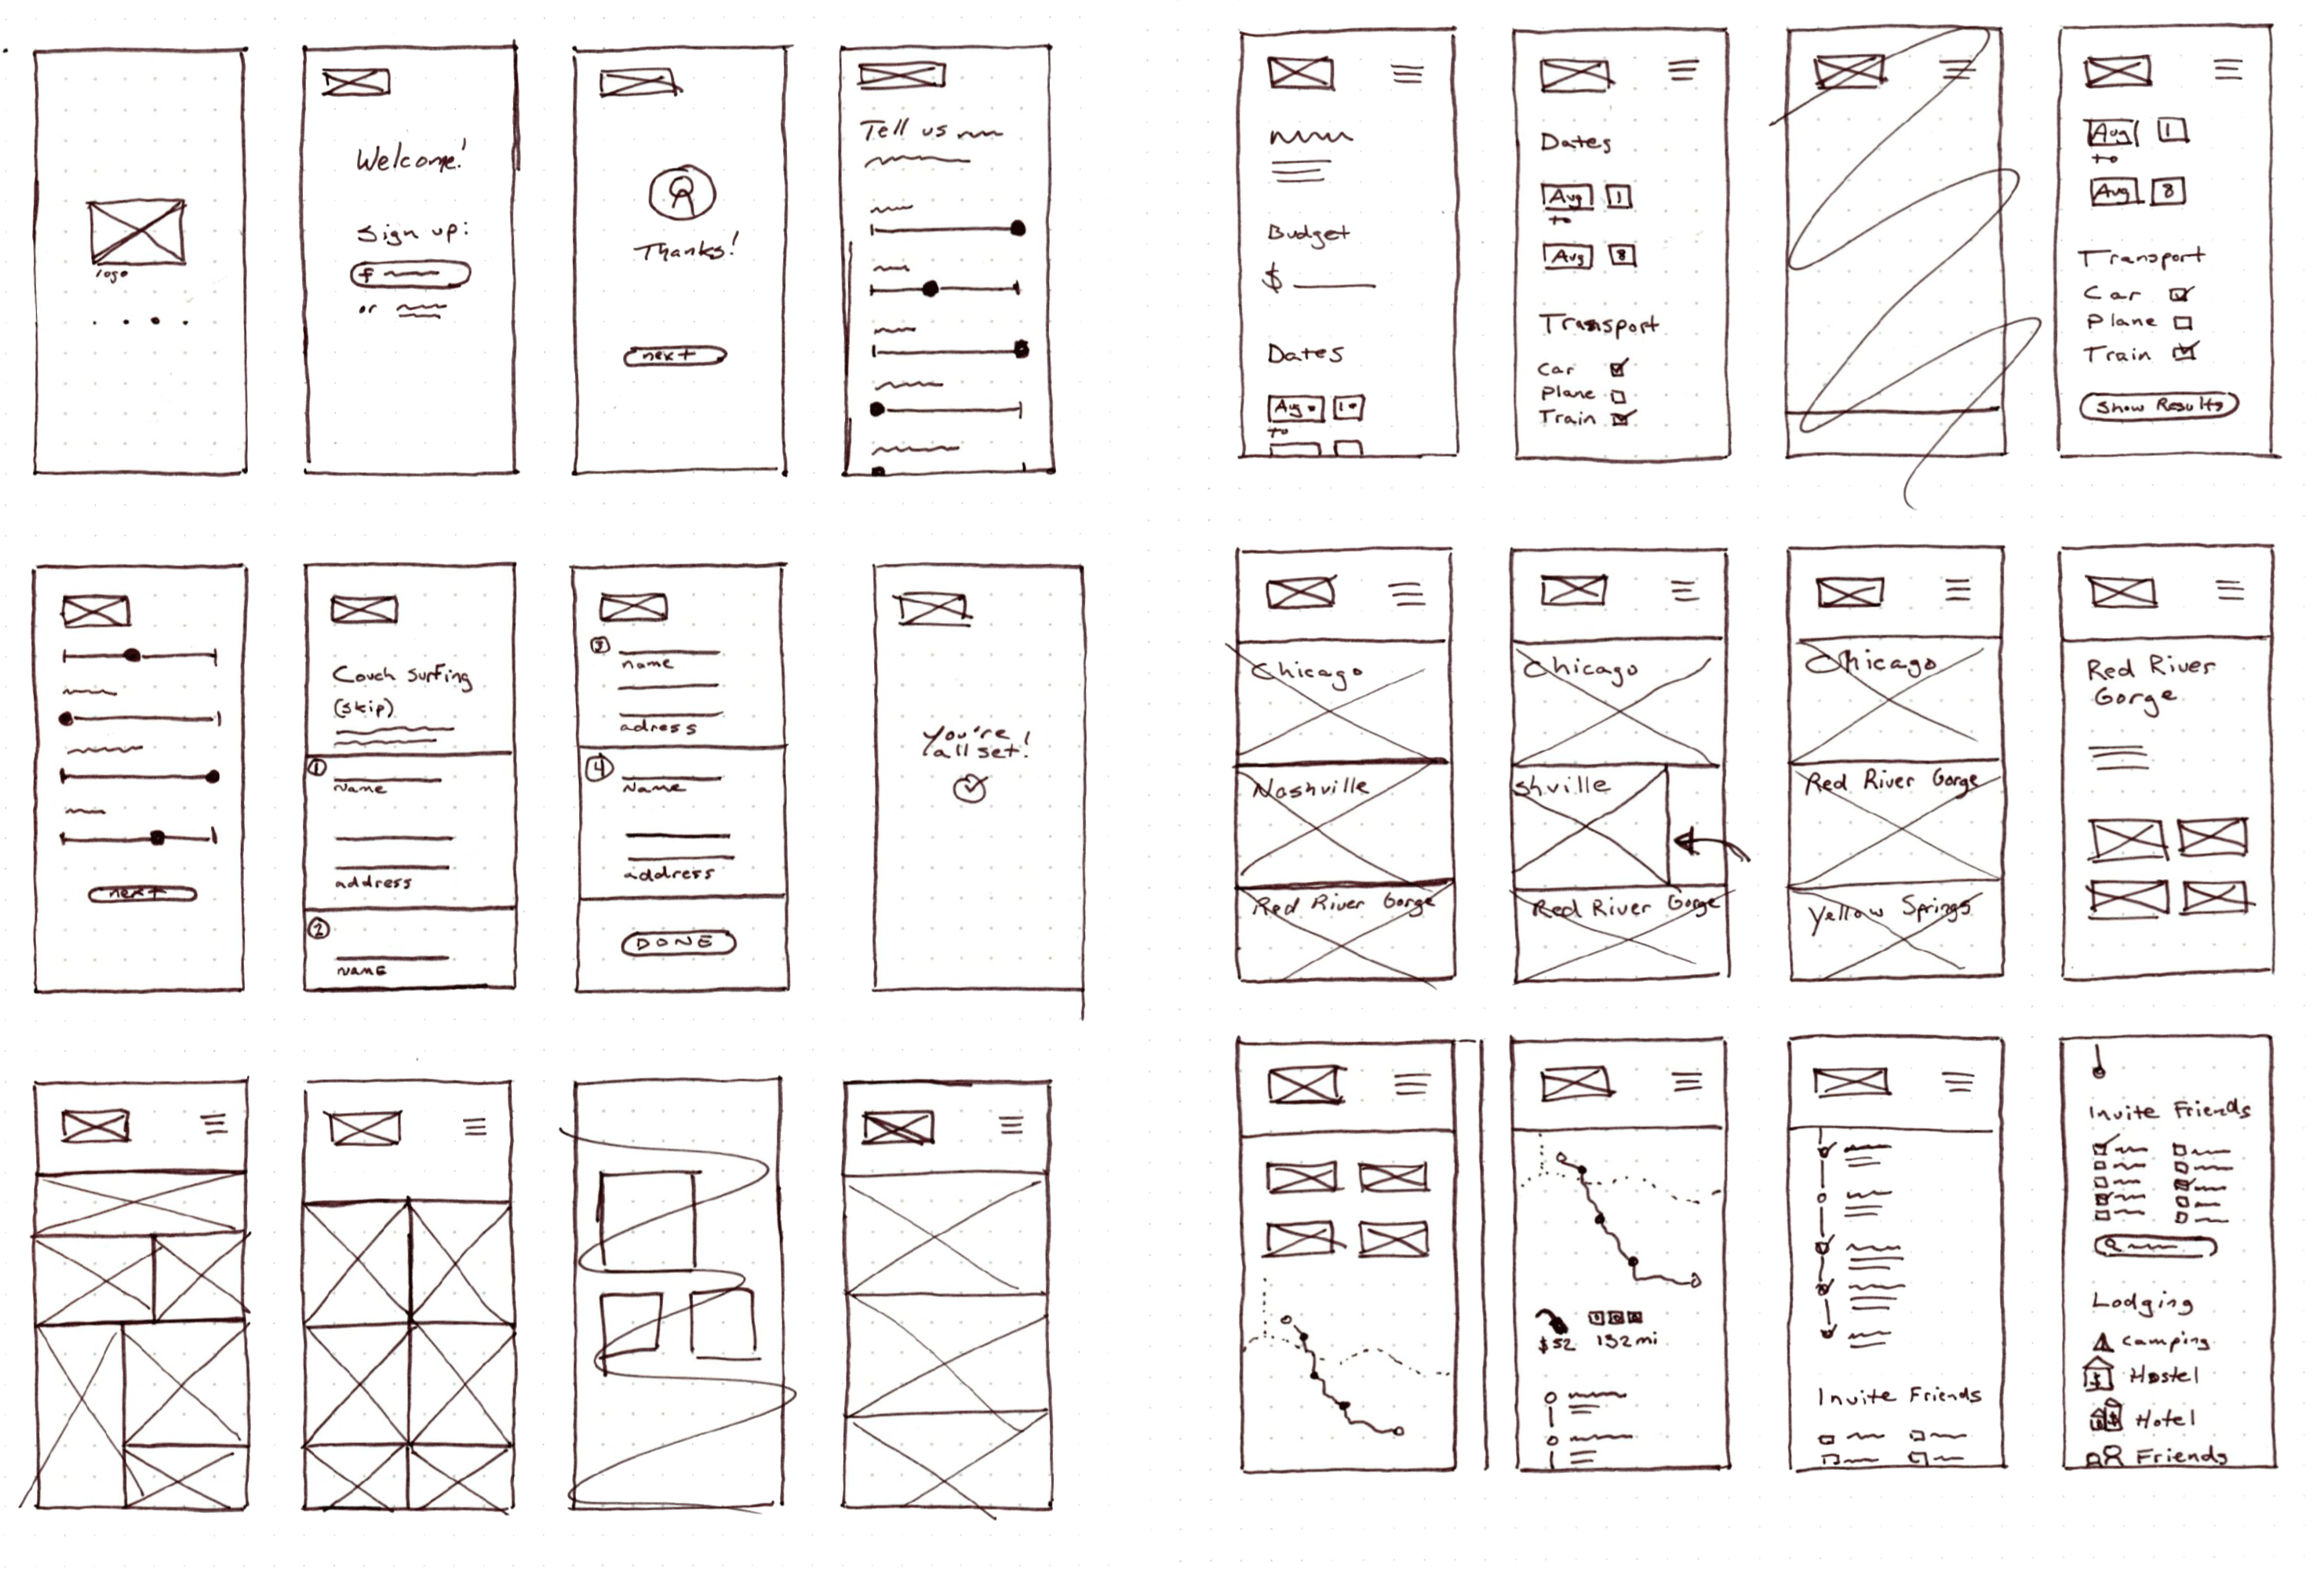 logo
Welcome!
Sign up:
f
or
Thanks!
next
Tell us
Couch surfing
(skip)
1
Name
address
2
NAME
next
3
name
adress
4
Name
address
DONE
You're
all set!
Budget
$
Dates
Aug
to
Dates
Aug 1
to
Aug 8
Transport
Car
Plane
Train
Aug 1
to
Aug 8
Transport
Car
Plane
Train
Show Results
Chicago
Nashville
Red River Gorge
Chicago
shville
Red River Gorge
Chicago
Red River Gorge
Yellow Springs
Red River
Gorge
$52 132mi
Invite Friends
Invite Friends
Lodging
Camping
Hostel
Hotel
Friends